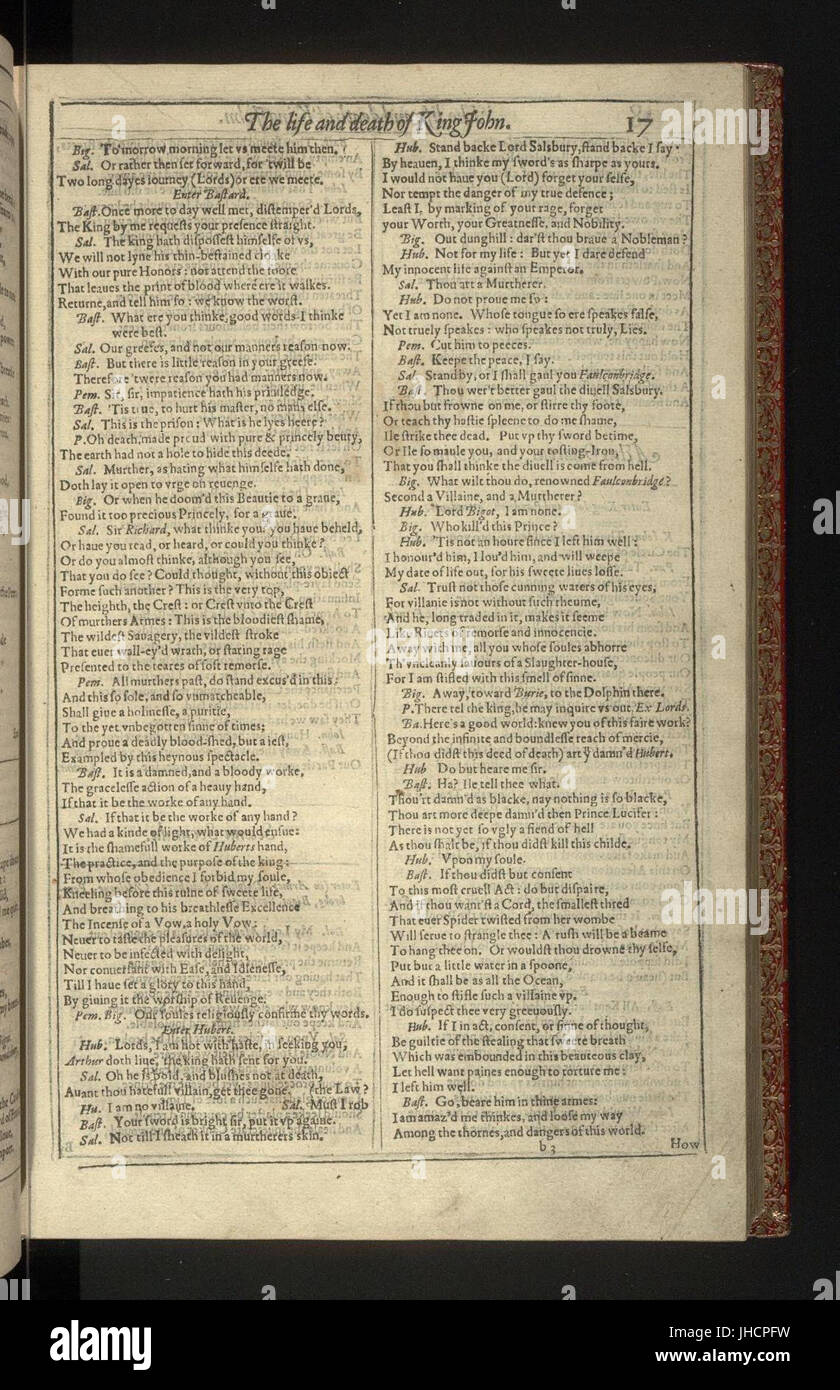 The life and death of King John. 17
Big. To morrow morning let vs meete him then.
Sal. Or rather then set forward, for 'twill be
Two long dayes iourney (Lords) or ere we meete.
Enter Bastard.
Bast. Once more to day well met, distemper'd Lords,
The King by me requests your presence straight.
Sal. The king hath dispossest himselfe of vs,
We will not lyne his thin-bestained cloake
With our pure Honors: nor attend the foote
That leaues the print of blood where ere it walkes.
Returne, and tell him so: we know the worst.
Bast. What ere you thinke, good words I thinke
were best.
Sal. Our greefes, and not our manners reason now.
Bast. But there is little reason in your greefe.
Therefore 'twere reason you had manners now.
Pem. Sir, sir, impatience hath his priuiledge.
Bast. 'Tis true, to hurt his master, no mans else.
Sal. This is the prison: What is he lyes heere?
P. Oh death, made proud with pure & princely beuty,
The earth had not a hole to hide this deede.
Sal. Murther, as hating what himselfe hath done,
Doth lay it open to vrge on reuenge.
Big. Or when he doom'd this Beautie to a graue,
Found it too precious Princely, for a graue.
Sal. Sir Richard, what thinke you? you haue beheld,
Or haue you read, or heard, or could you thinke?
Or do you almost thinke, although you see,
That you do see? Could thought, without this obiect
Forme such another? This is the very top,
The heighth, the Crest: or Crest vnto the Crest
Of murthers Armes: This is the bloodiest shame,
The wildest Sauagery, the vildest stroke
That euer wall-ey'd wrath, or staring rage
Presented to the teares of soft remorse.
Pem. All murthers past, do stand excus'd in this:
And this so sole, and so vnmatcheable,
Shall giue a holinesse, a puritie,
To the yet vnbegotten sinne of times;
And proue a deadly blood-shed, but a iest,
Exampled by this heynous spectacle.
Bast. It is a damned, and a bloody worke,
The gracelesse action of a heauy hand,
If that it be the worke of any hand.
Sal. If that it be the worke of any hand?
We had a kinde of light, what would ensue:
It is the shamefull worke of Huberts hand,
The practice, and the purpose of the king:
From whose obedience I forbid my soule,
Kneeling before this ruine of sweete life,
And breathing to his breathlesse Excellence
The Incense of a Vow, a holy Vow:
Neuer to taste the pleasures of the world,
Neuer to be infected with delight,
Nor conuersant with Ease, and Idlenesse,
Till I haue set a glory to this hand,
By giuing it the worship of Reuenge.
Pem. Big. Our soules religiously confirme thy words.
Enter Hubert.
Hub. Lords, I am hot with haste, in seeking you,
Arthur doth liue, the king hath sent for you.
Sal. Oh he is bold, and blushes not at death,
Auant thou hatefull villain, get thee gone. (the Law?
Hu. I am no villaine. Sal. Must I rob
Bast. Your sword is bright sir, put it vp againe.
Sal. Not till I sheath it in a murtherers skin.
Hub. Stand backe Lord Salsbury, stand backe I say
By heauen, I thinke my sword's as sharpe as yours.
I would not haue you (Lord) forget your selfe,
Nor tempt the danger of my true defence;
Least I, by marking of your rage, forget
your Worth, your Greatnesse, and Nobility.
Big. Out dunghill: dar'st thou braue a Nobleman?
Hub. Not for my life: But yet I dare defend
My innocent life against an Emperor.
Sal. Thou art a Murtherer.
Hub. Do not proue me so:
Yet I am none. Whose tongue so ere speakes false,
Not truely speakes: who speakes not truly, Lies.
Pem. Cut him to peeces.
Bast. Keepe the peace, I say.
Sal. Stand by, or I shall gaul you Faulconbridge.
Bast. Thou wer't better gaul the diuell Salsbury.
If thou but frowne on me, or stirre thy foote,
Or teach thy hastie spleene to do me shame,
Ile strike thee dead. Put vp thy sword betime,
Or Ile so maule you, and your tosting-Iron,
That you shall thinke the diuell is come from hell.
Big. What wilt thou do, renowned Faulconbridge?
Second a Villaine, and a Murtherer?
Hub. Lord Bigot, I am none.
Big. Who kill'd this Prince?
Hub. 'Tis not an houre since I left him well:
I honour'd him, I lou'd him, and will weepe
My date of life out, for his sweete liues losse.
Sal. Trust not those cunning waters of his eyes,
For villanie is not without such rheume,
And he, long traded in it, makes it seeme
Like Riuers of remorse and innocencie.
Away with me, all you whose soules abhorre
Th'vncleanly sauours of a Slaughter-house,
For I am stifled with this smell of sinne.
Big. Away, toward Burie, to the Dolphin there.
P. There tel the king, he may inquire vs out. Ex Lords.
Ba. Here's a good world: knew you of this faire work?
Beyond the infinite and boundlesse reach of mercie,
(If thou didst this deed of death) art ye damn'd Hubert.
Hub Do but heare me sir.
Bast. Ha? Ile tell thee what.
Thou'rt damn'd as blacke, nay nothing is so blacke,
Thou art more deepe damn'd then Prince Lucifer:
There is not yet so vgly a fiend of hell
As thou shalt be, if thou didst kill this childe.
Hub. Vpon my soule.
Bast. If thou didst but consent
To this most cruell Act: do but dispaire,
And if thou want'st a Cord, the smallest thred
That euer Spider twisted from her wombe
Will serue to strangle thee: A rush will be a beame
To hang thee on. Or wouldst thou drowne thy selfe,
Put but a little water in a spoone,
And it shall be as all the Ocean,
Enough to stifle such a villaine vp.
I do suspect thee very greeuously.
Hub. If I in act, consent, or sinne of thought,
Be guiltie of the stealing that sweete breath
Which was embounded in this beauteous clay,
Let hell want paines enough to torture me:
I left him well.
Bast. Go, beare him in thine armes:
I am amaz'd me thinkes, and loose my way
Among the thornes, and dangers of this world.
b 3 How
alamy
Image ID: JHCPFW
www.alamy.com